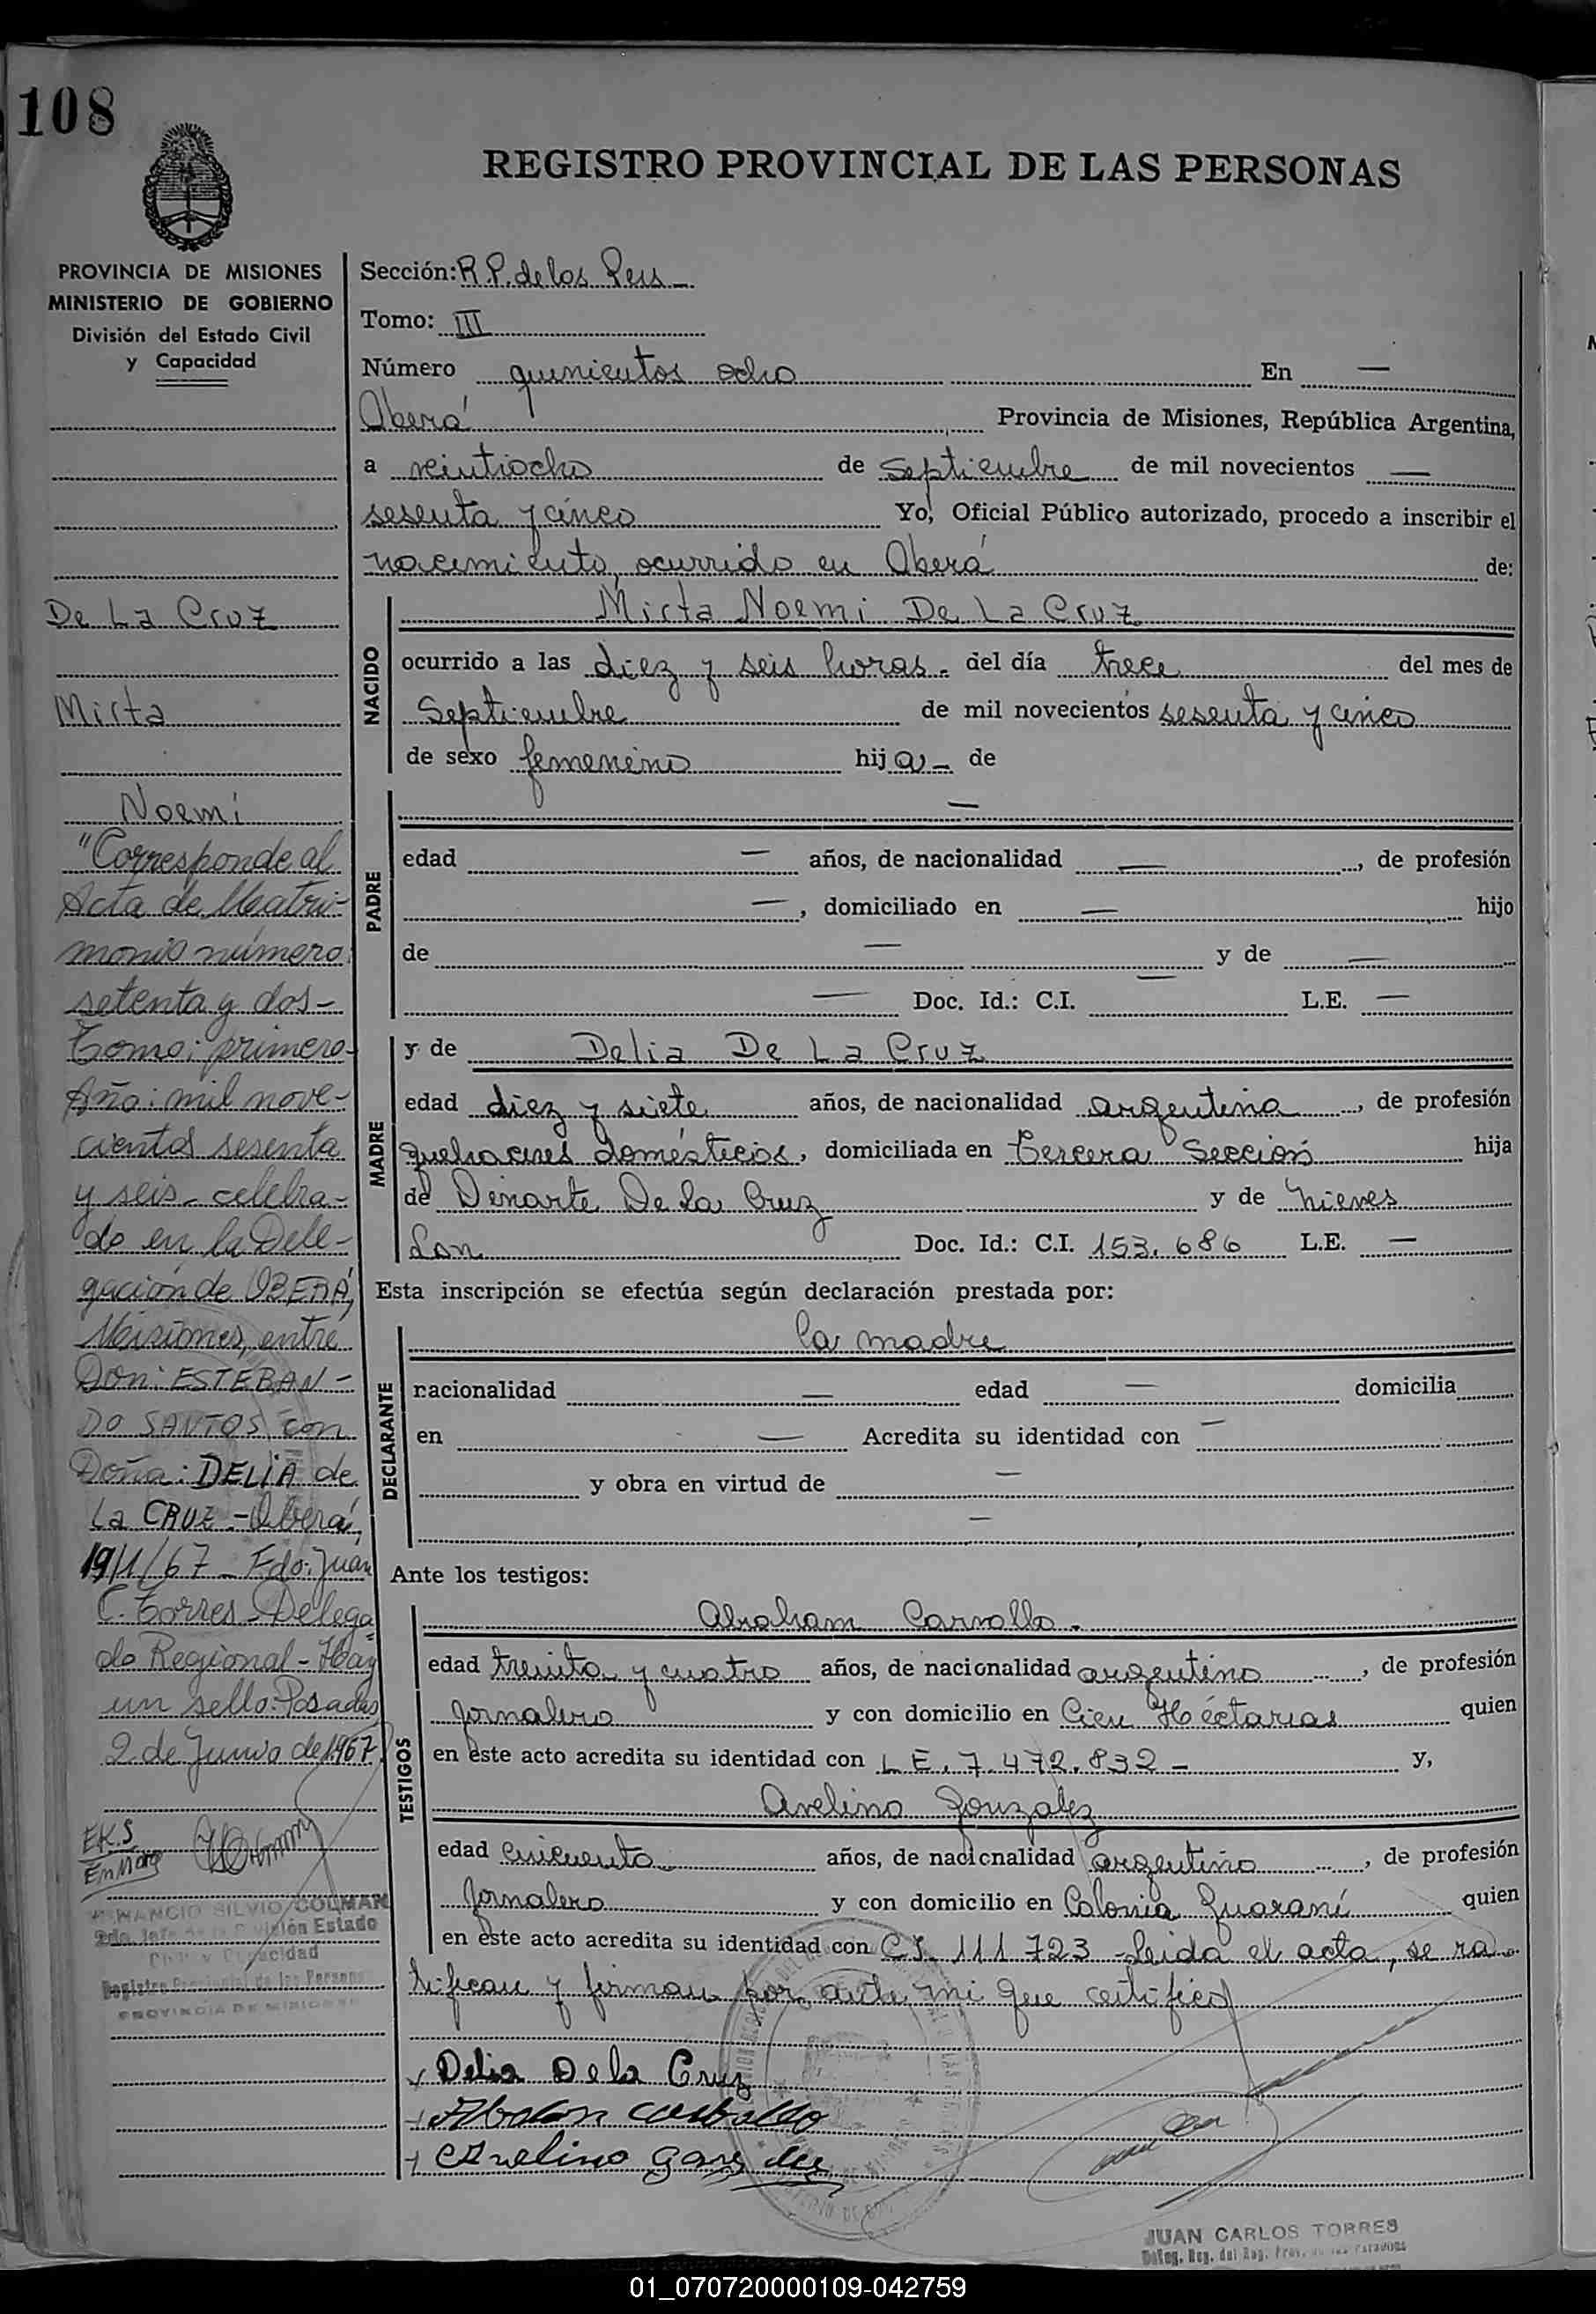 108
REGISTRO PROVINCIAL DE LAS PERSONAS
PROVINCIA DE MISIONES
MINISTERIO DE GOBIERNO
División del Estado Civil
y Capacidad
De La Cruz
Mirta
Noemi
"Corresponde al
Acta de Matri-
monio número
setenta y dos-
Tomo: primero-
Año: mil nove-
cientos sesenta
y seis - celebra-
do en la Dele-
gación de OBERÁ,
Misiones, entre
Don: ESTEBAN -
DO SANTOS con
Doña: DELIA de
La CRUZ - Oberá,
19/1/67 - Fdo: Juan
C. Torres - Delega=
do Regional - Hay
un sello: Posadas,
2 de Junio de 1967
E.K.S
SILVIO COLMAN
2do. Jefe de la División Estado
Civil y Capacidad
Registro Provincial de las Personas
PROVINCIA DE MISIONES
Sección: R.P. de los Pers -
Tomo: III
Número quinientos ocho En —
Oberá Provincia de Misiones, República Argentina,
a veintiocho de Septiembre de mil novecientos —
sesenta y cinco Yo, Oficial Público autorizado, procedo a inscribir el
nacimiento, ocurrido en Oberá de:
NACIDO
Mirta Noemi De La Cruz
ocurrido a las diez y seis horas - del día trece del mes de
Septiembre de mil novecientos sesenta y cinco
de sexo femenino hija - de
PADRE
—
edad — años, de nacionalidad —, de profesión
—, domiciliado en — hijo
de — y de —
— Doc. Id.: C.I. — L.E. —
MADRE
y de Delia De La Cruz
edad diez y siete años, de nacionalidad argentina, de profesión
quehaceres domésticos, domiciliada en Tercera Sección hija
de Dinarte De La Cruz y de Nieves
Lon Doc. Id.: C.I. 153.686 L.E. —
Esta inscripción se efectúa según declaración prestada por:
DECLARANTE
la madre
nacionalidad — edad — domicilia
en — Acredita su identidad con —
y obra en virtud de —
—
Ante los testigos:
TESTIGOS
Abraham Carvallo.
edad treinta y cuatro años, de nacionalidad argentino, de profesión
Jornalero y con domicilio en Cien Héctarias quien
en este acto acredita su identidad con L E. 7.472.832 - y,
Avelino Gonzalez
edad cincuenta años, de nacionalidad argentino, de profesión
Jornalero y con domicilio en Colonia Guaraní quien
en este acto acredita su identidad con C.I. 111.723 - Leida el acta, se ra
tifican y firman por ante mi que certifico
Delia De la Cruz
Avelino
JUAN CARLOS TORRES
Deleg. Reg. del Reg. Prov. de las Personas
01_070720000109-042759